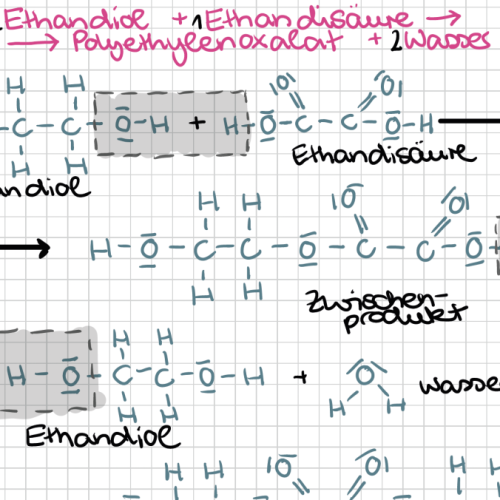 Ethandiol + 1 Ethandisäure →
→ Polyethylenoxalat + 2 Wasser
H H |O| |O|
– C – C – O – H + H – O – C – C – O – H
H H
Ethandisäure
andiol
H H |O |O|
→ H – O – C – C – O – C – C – O
H H
Zwischen-
produkt
H H
H – O – C – C – O – H + O Wasse
H H H H
Ethandiol
H H |O |O| H H